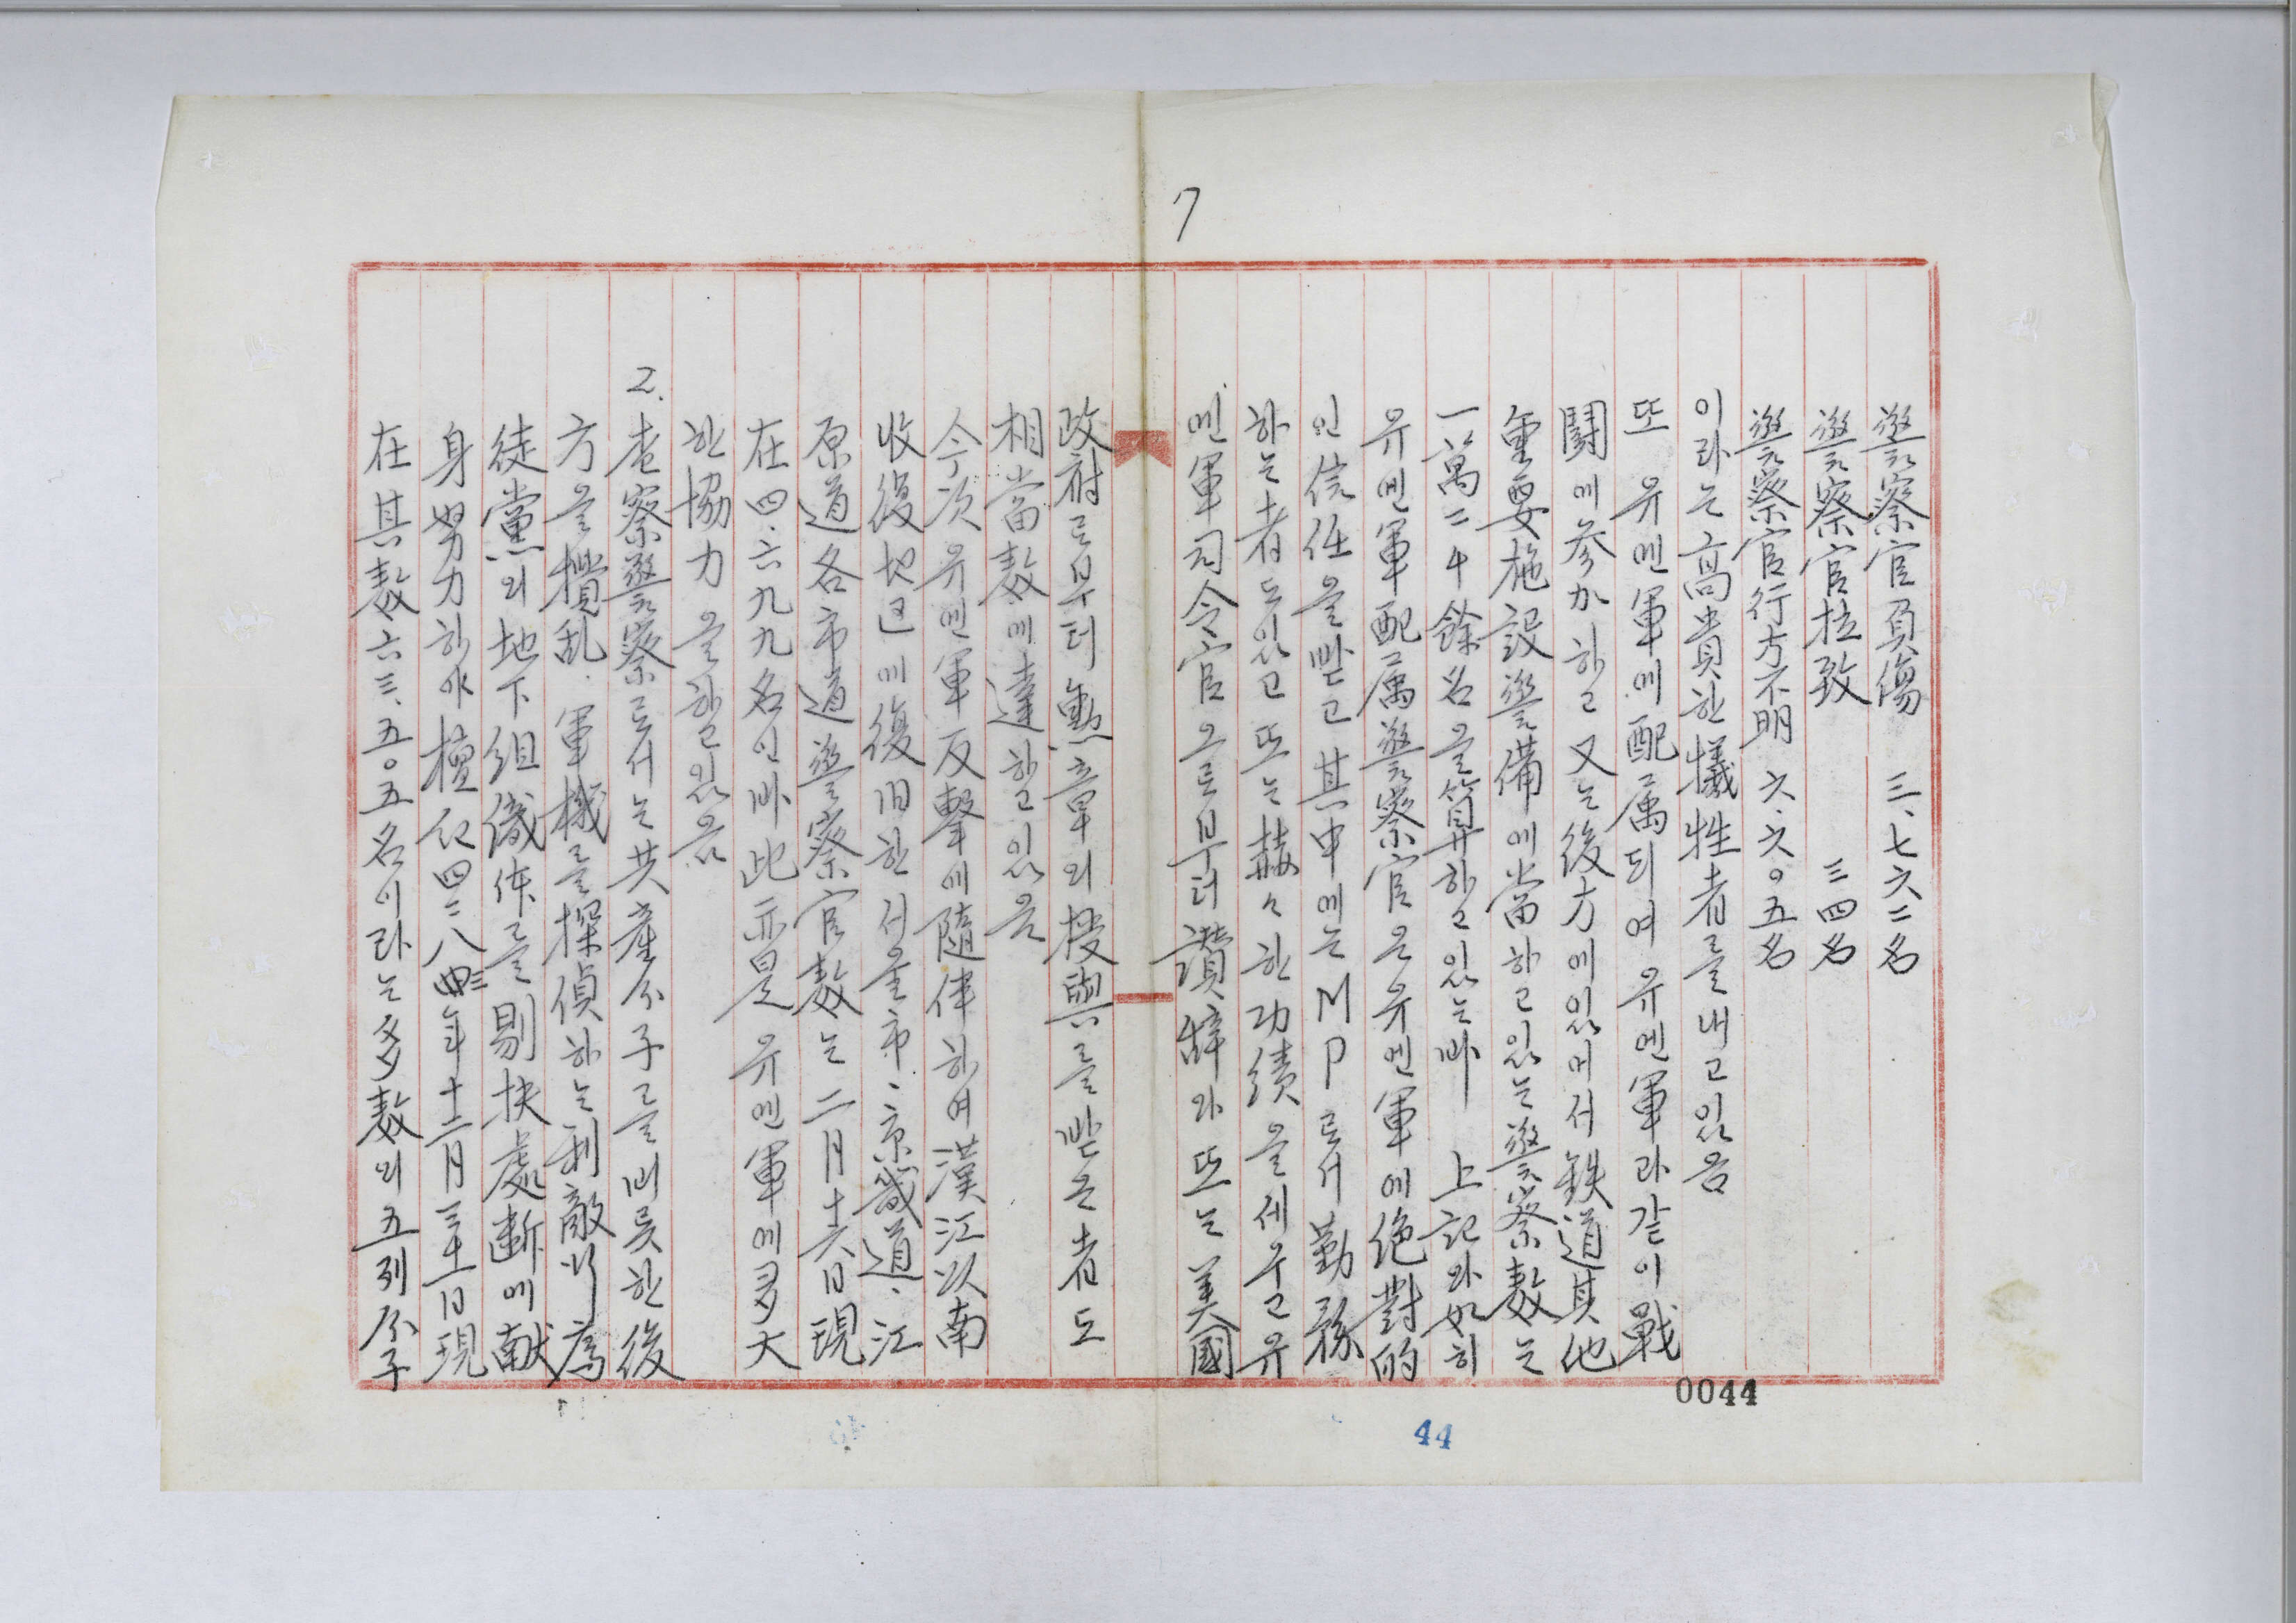 7
警察官負傷 三、七六二名
警察官拉致 三四名
警察官行方不明 六、六〇五名
이라는 高貴한 犧牲者를 내고 있음
또 유엔軍에 配属되여 유엔軍과 같이 戰
鬪에 參加하고 又는 後方에 있어서 鉄道 其他
重要施設 警備에 當하고 있는 警察數는
一萬二千餘名을 算하고 있는바 上記와 如히
유엔軍配属警察官은 유엔軍에 絶對的
인 信任을 받고 其中에는 MP로서 勤務
하는 者도 있고 또는 赫々한 功績을 세우고 유
엔軍司令官으로부터 讚辭와 또는 美國
政府로부터 勲章의 授與를 받은 者도
相當數에 達하고 있음
今次 유엔軍 反擊에 隨伴하여 漢江以南
收復地区에 復旧한 서울市、京畿道、江
原道 各市道 警察官數는 二月十六日 現
在 四、六九九名인바 此亦是 유엔軍에 多大
한 協力을 하고 있음
2. 査察警察로서는 共産分子를 비롯한 後
方을 攪乱、軍機를 探偵하는 利敵行為
徒黨의 地下組織体를 剔抉處斷에 献
身努力하야 檀紀四二八三年 十二月 三十一日 現
在 其數 六三、五〇五名이라는 多數의 五列分子
0044
44